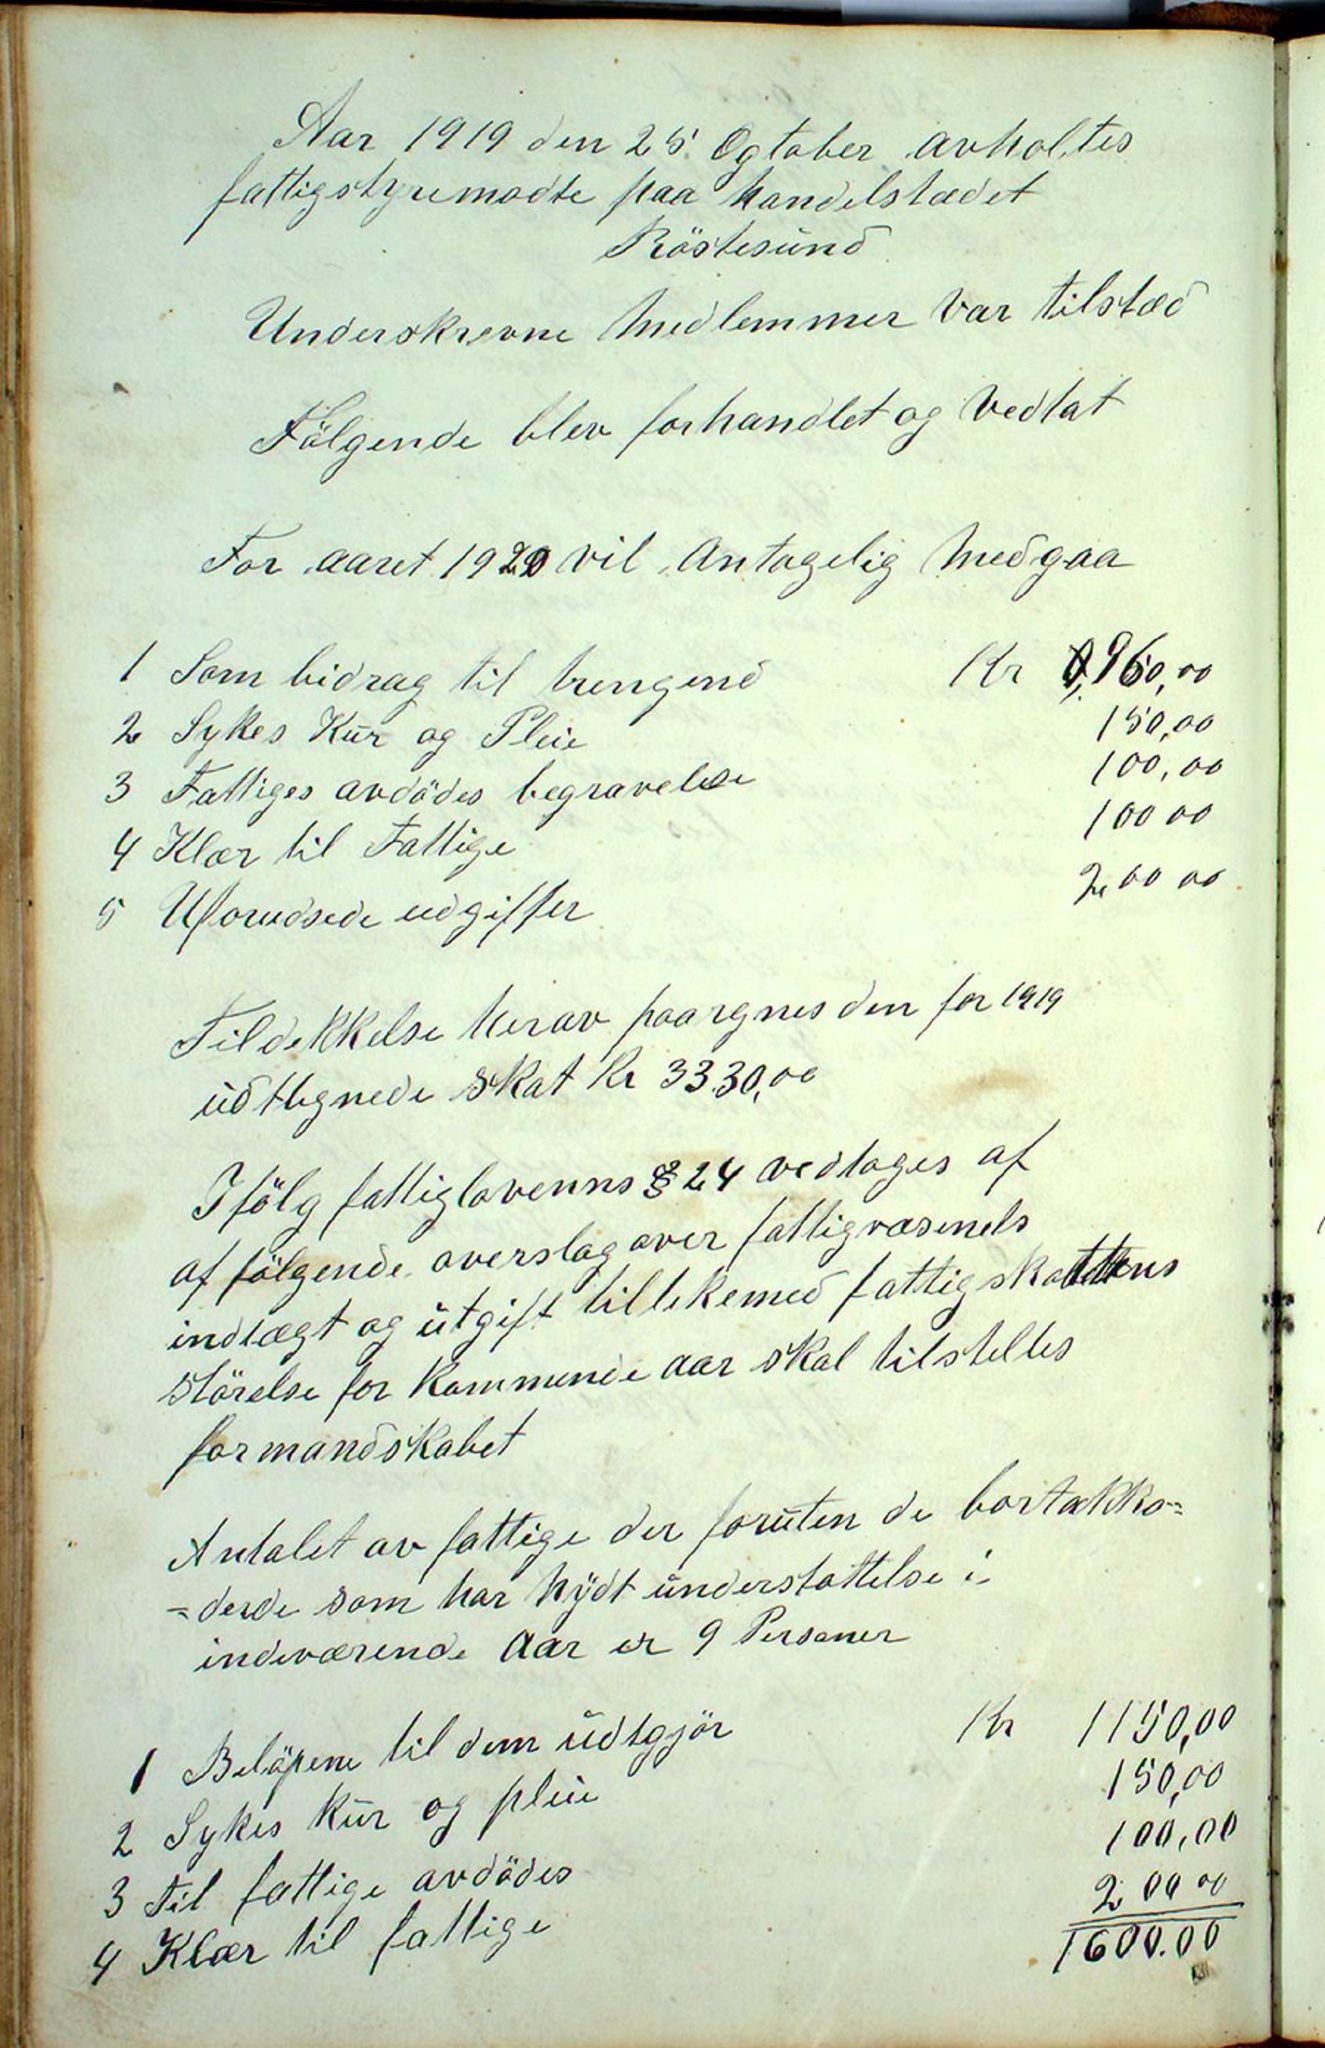 Aar 1919 den 25. Ogtober avholtes
fattigstyremødte paa handelstædet
Röstesund
Underskrevne Medlemmer var tilstæd
Fölgende blev forhandlet og vedtat
For aaret 1920 vil Antagelig Medgaa
1 Som bidrag til trengend Kr 960,00
2 Sykes Kur og Pleie 150,00
3 Fattiges avdödes begravelse 100,00
4 Klær til Fattige 100 00
5 Uforudsede udgifter 200 00
Til dekkelse herav paaregnes den for 1919
udlignede Skat Kr 3330,00
Ifölg fattiglovenns § 24 vedtoges af
af fölgende overslag over fattigvæsenets
indtægt og utgift tillikemed fattigskattens
störelse for kommende aar skal tilstelles
formandskabet
Antalet av fattige der foruten de bortakko=
=derde som har nydt understøttelse i
indeværende Aar er 9 Personer
1 Belöpene til dem udtgjör Kr 1150,00
2 Sykes kur og pleie 150,00
3 Til fattige avdödes 100,00
4 Klær til fattige 200 00
1600.00